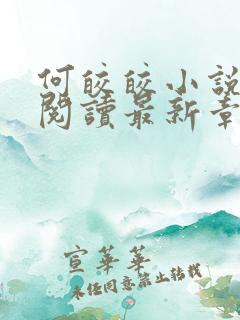 何皎皎小說
閱讀最新章
宣華華
未经同意禁止转载